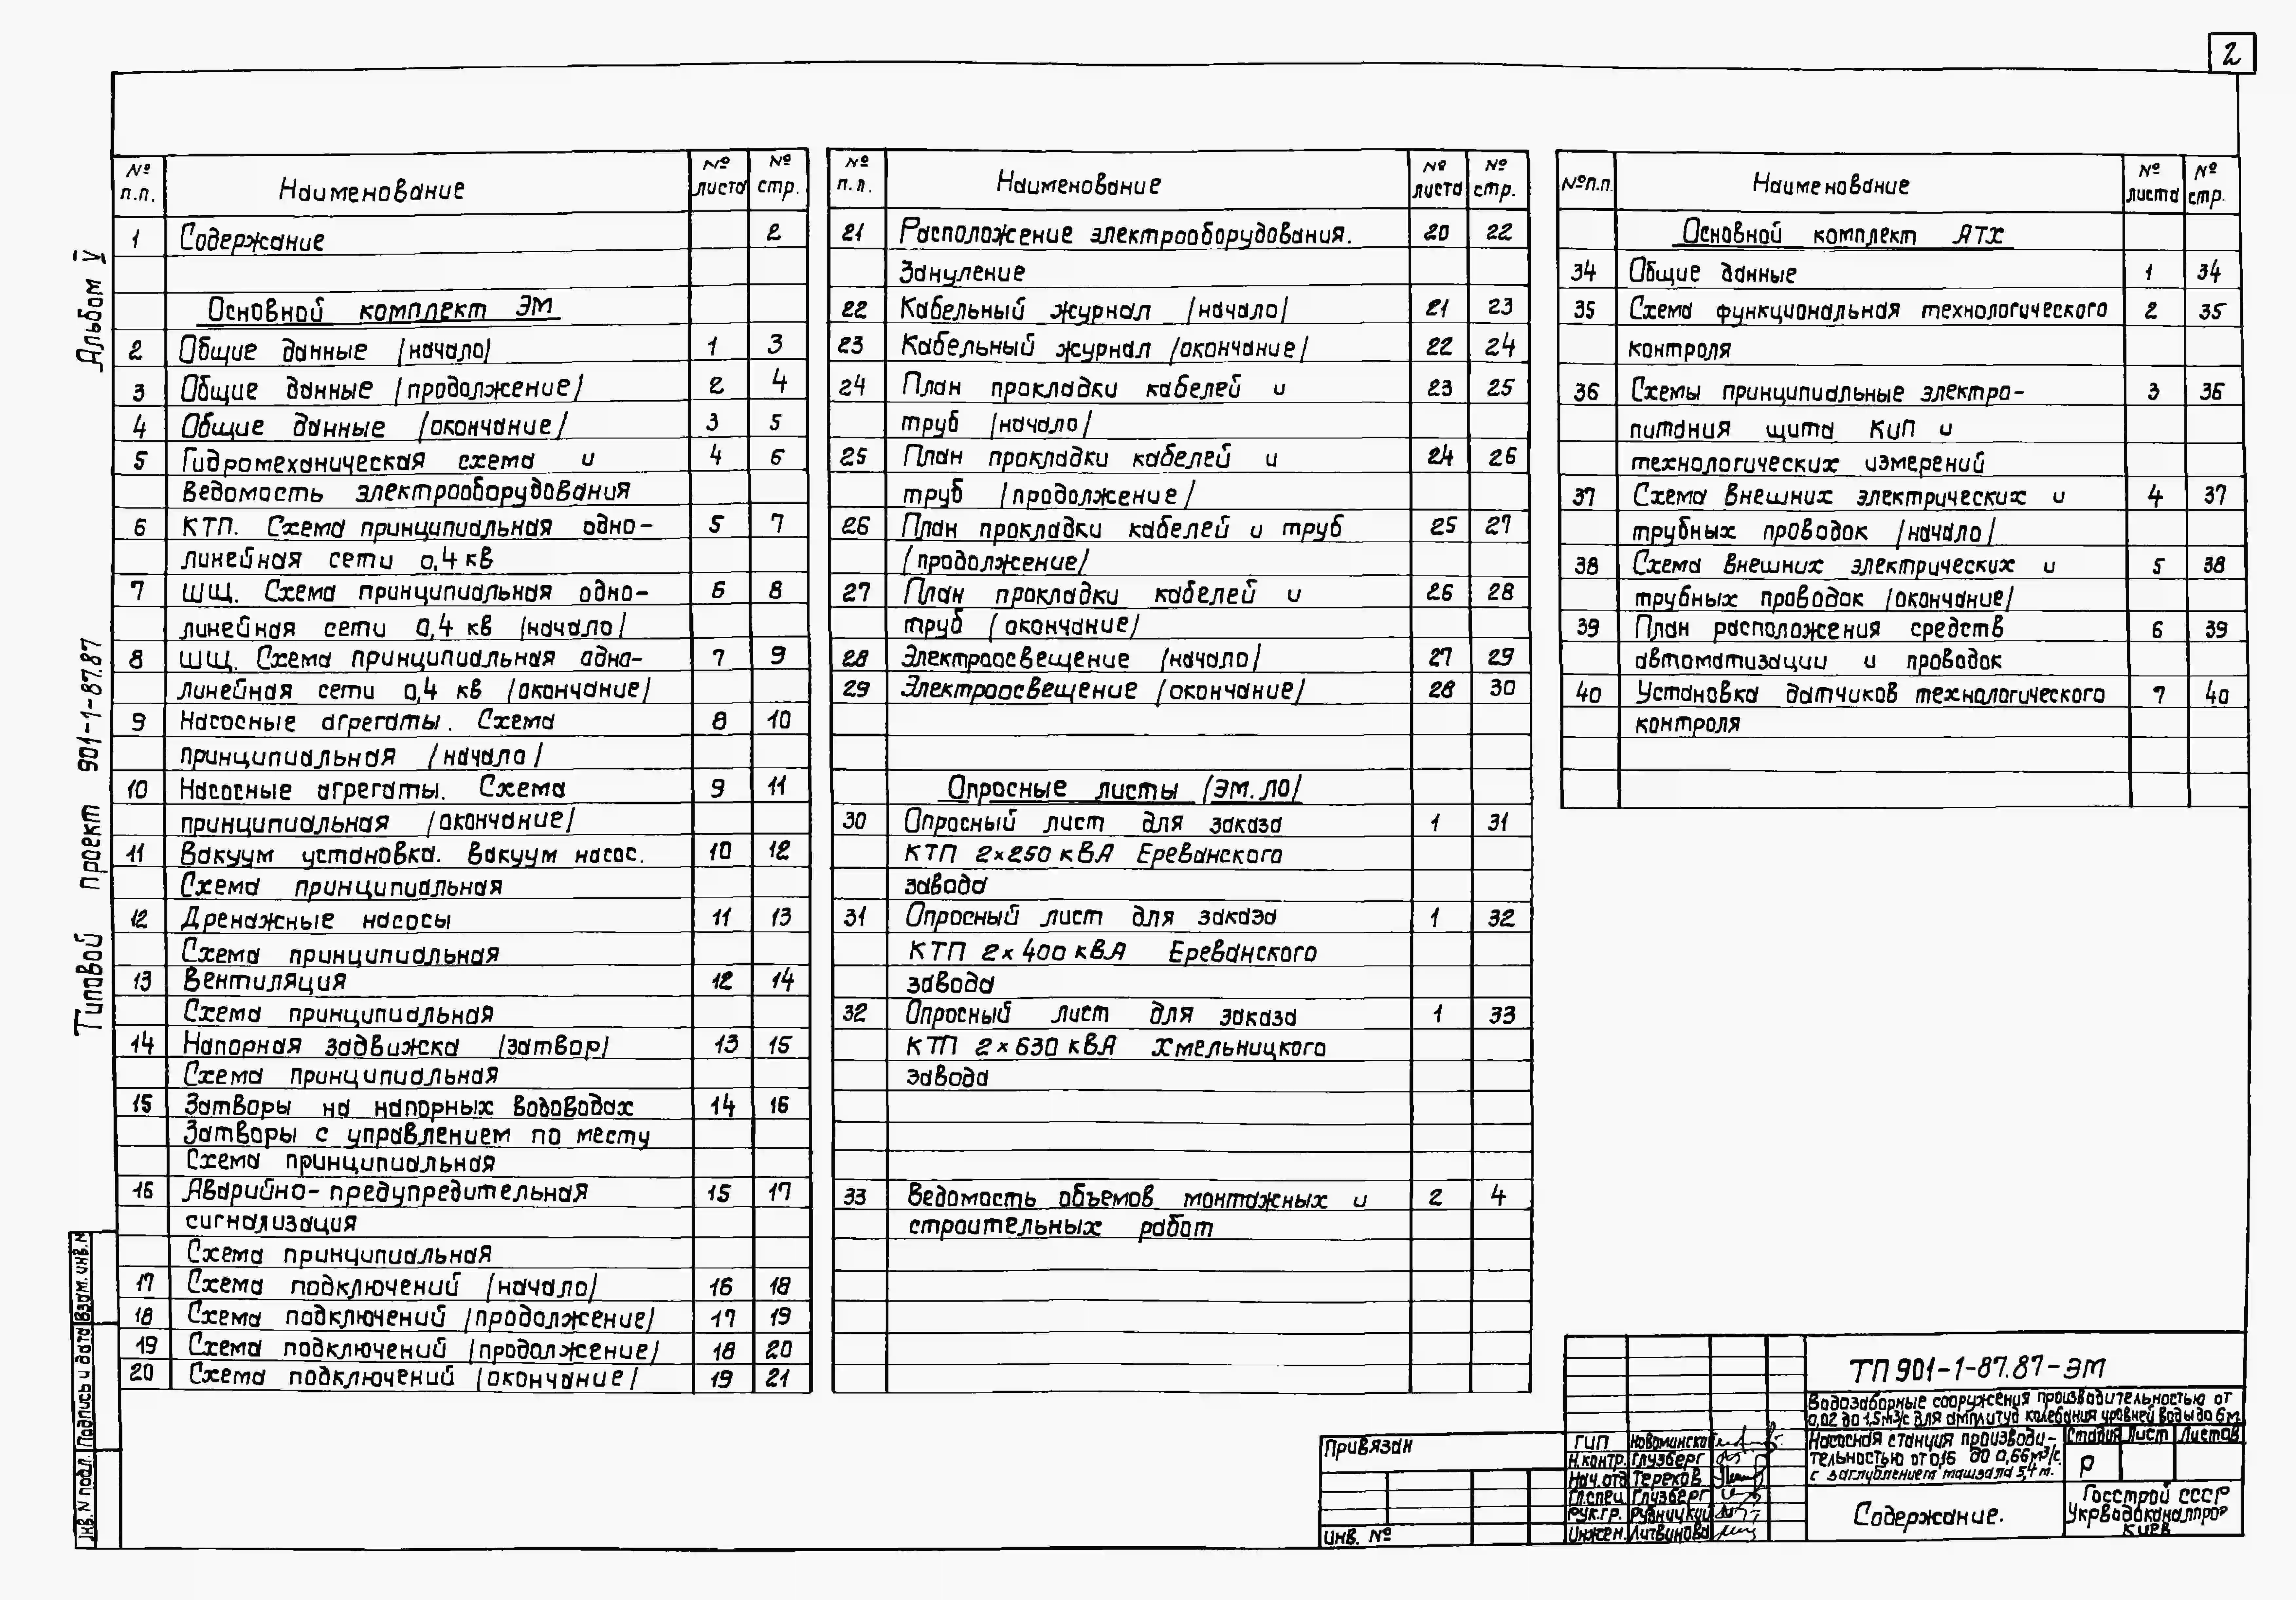 2
Альбом V
Типовой проект 901-1-87.87
№ п.п. Наименование № листа № стр.
1 Содержание 2
Основной комплект ЭМ
2 Общие данные /начало/ 1 3
3 Общие данные /продолжение/ 2 4
4 Общие данные /окончание/ 3 5
5 Гидромеханическая схема и 4 6
ведомость электрооборудования
6 КТП. Схема принципиальная одно- 5 7
линейная сети 0,4 кВ
7 ШЩ. Схема принципиальная одно- 6 8
линейная сети 0,4 кВ /начало/
8 ШЩ. Схема принципиальная одно- 7 9
линейная сети 0,4 кВ /окончание/
9 Насосные агрегаты. Схема 8 10
принципиальная /начало/
10 Насосные агрегаты. Схема 9 11
принципиальная /окончание/
11 Вакуум установка. Вакуум насос. 10 12
Схема принципиальная
12 Дренажные насосы 11 13
Схема принципиальная
13 Вентиляция 12 14
Схема принципиальная
14 Напорная задвижка /затвор/ 13 15
Схема принципиальная
15 Затворы на напорных водоводах 14 16
Затворы с управлением по месту
Схема принципиальная
16 Аварийно-предупредительная 15 17
сигнализация
Схема принципиальная
17 Схема подключений /начало/ 16 18
18 Схема подключений /продолжение/ 17 19
19 Схема подключений /продолжение/ 18 20
20 Схема подключений /окончание/ 19 21
№ п.п. Наименование № листа № стр.
21 Расположение электрооборудования. 20 22
Зануление
22 Кабельный журнал /начало/ 21 23
23 Кабельный журнал /окончание/ 22 24
24 План прокладки кабелей и 23 25
труб /начало/
25 План прокладки кабелей и 24 26
труб /продолжение/
26 План прокладки кабелей и труб 25 27
/продолжение/
27 План прокладки кабелей и 26 28
труб /окончание/
28 Электроосвещение /начало/ 27 29
29 Электроосвещение /окончание/ 28 30
Опросные листы /ЭМ.ЛО/
30 Опросный лист для заказа 1 31
КТП 2×250 кВА Ереванского
завода
31 Опросный лист для заказа 1 32
КТП 2×400 кВА Ереванского
завода
32 Опросный лист для заказа 1 33
КТП 2×630 кВА Хмельницкого
завода
33 Ведомость объемов монтажных и 2 4
строительных работ
№п.п. Наименование № листа № стр.
Основной комплект АТХ
34 Общие данные 1 34
35 Схема функциональная технологического 2 35
контроля
36 Схемы принципиальные электро- 3 36
питания щита КиП и
технологических измерений
37 Схема внешних электрических и 4 37
трубных проводок /начало/
38 Схема внешних электрических и 5 38
трубных проводок /окончание/
39 План расположения средств 6 39
автоматизации и проводок
40 Установка датчиков технологического 7 40
контроля
Взам. инв. N
Подпись и дата
Инв. N подл.
Привязан
Инв. №
ТП 901-1-87.87-ЭМ
Водозаборные сооружения производительностью от
0,02 до 1,5м³/с для амплитуд колебания уровней воды до 6м
ГИП Новоминский
Н.контр. Глузберг
Нач.отд Терехов
Гл.спец Глузберг
Рук.гр. Рудницкий
Инжен. Литвинова
Насосная станция производи-
тельностью от 0,16 до 0,66м³/с.
с заглублением машзала 5,4 м.
Стадия Лист Листов
Р
Содержание.
Госстрой СССР
Укрводоканалпроект
Киев